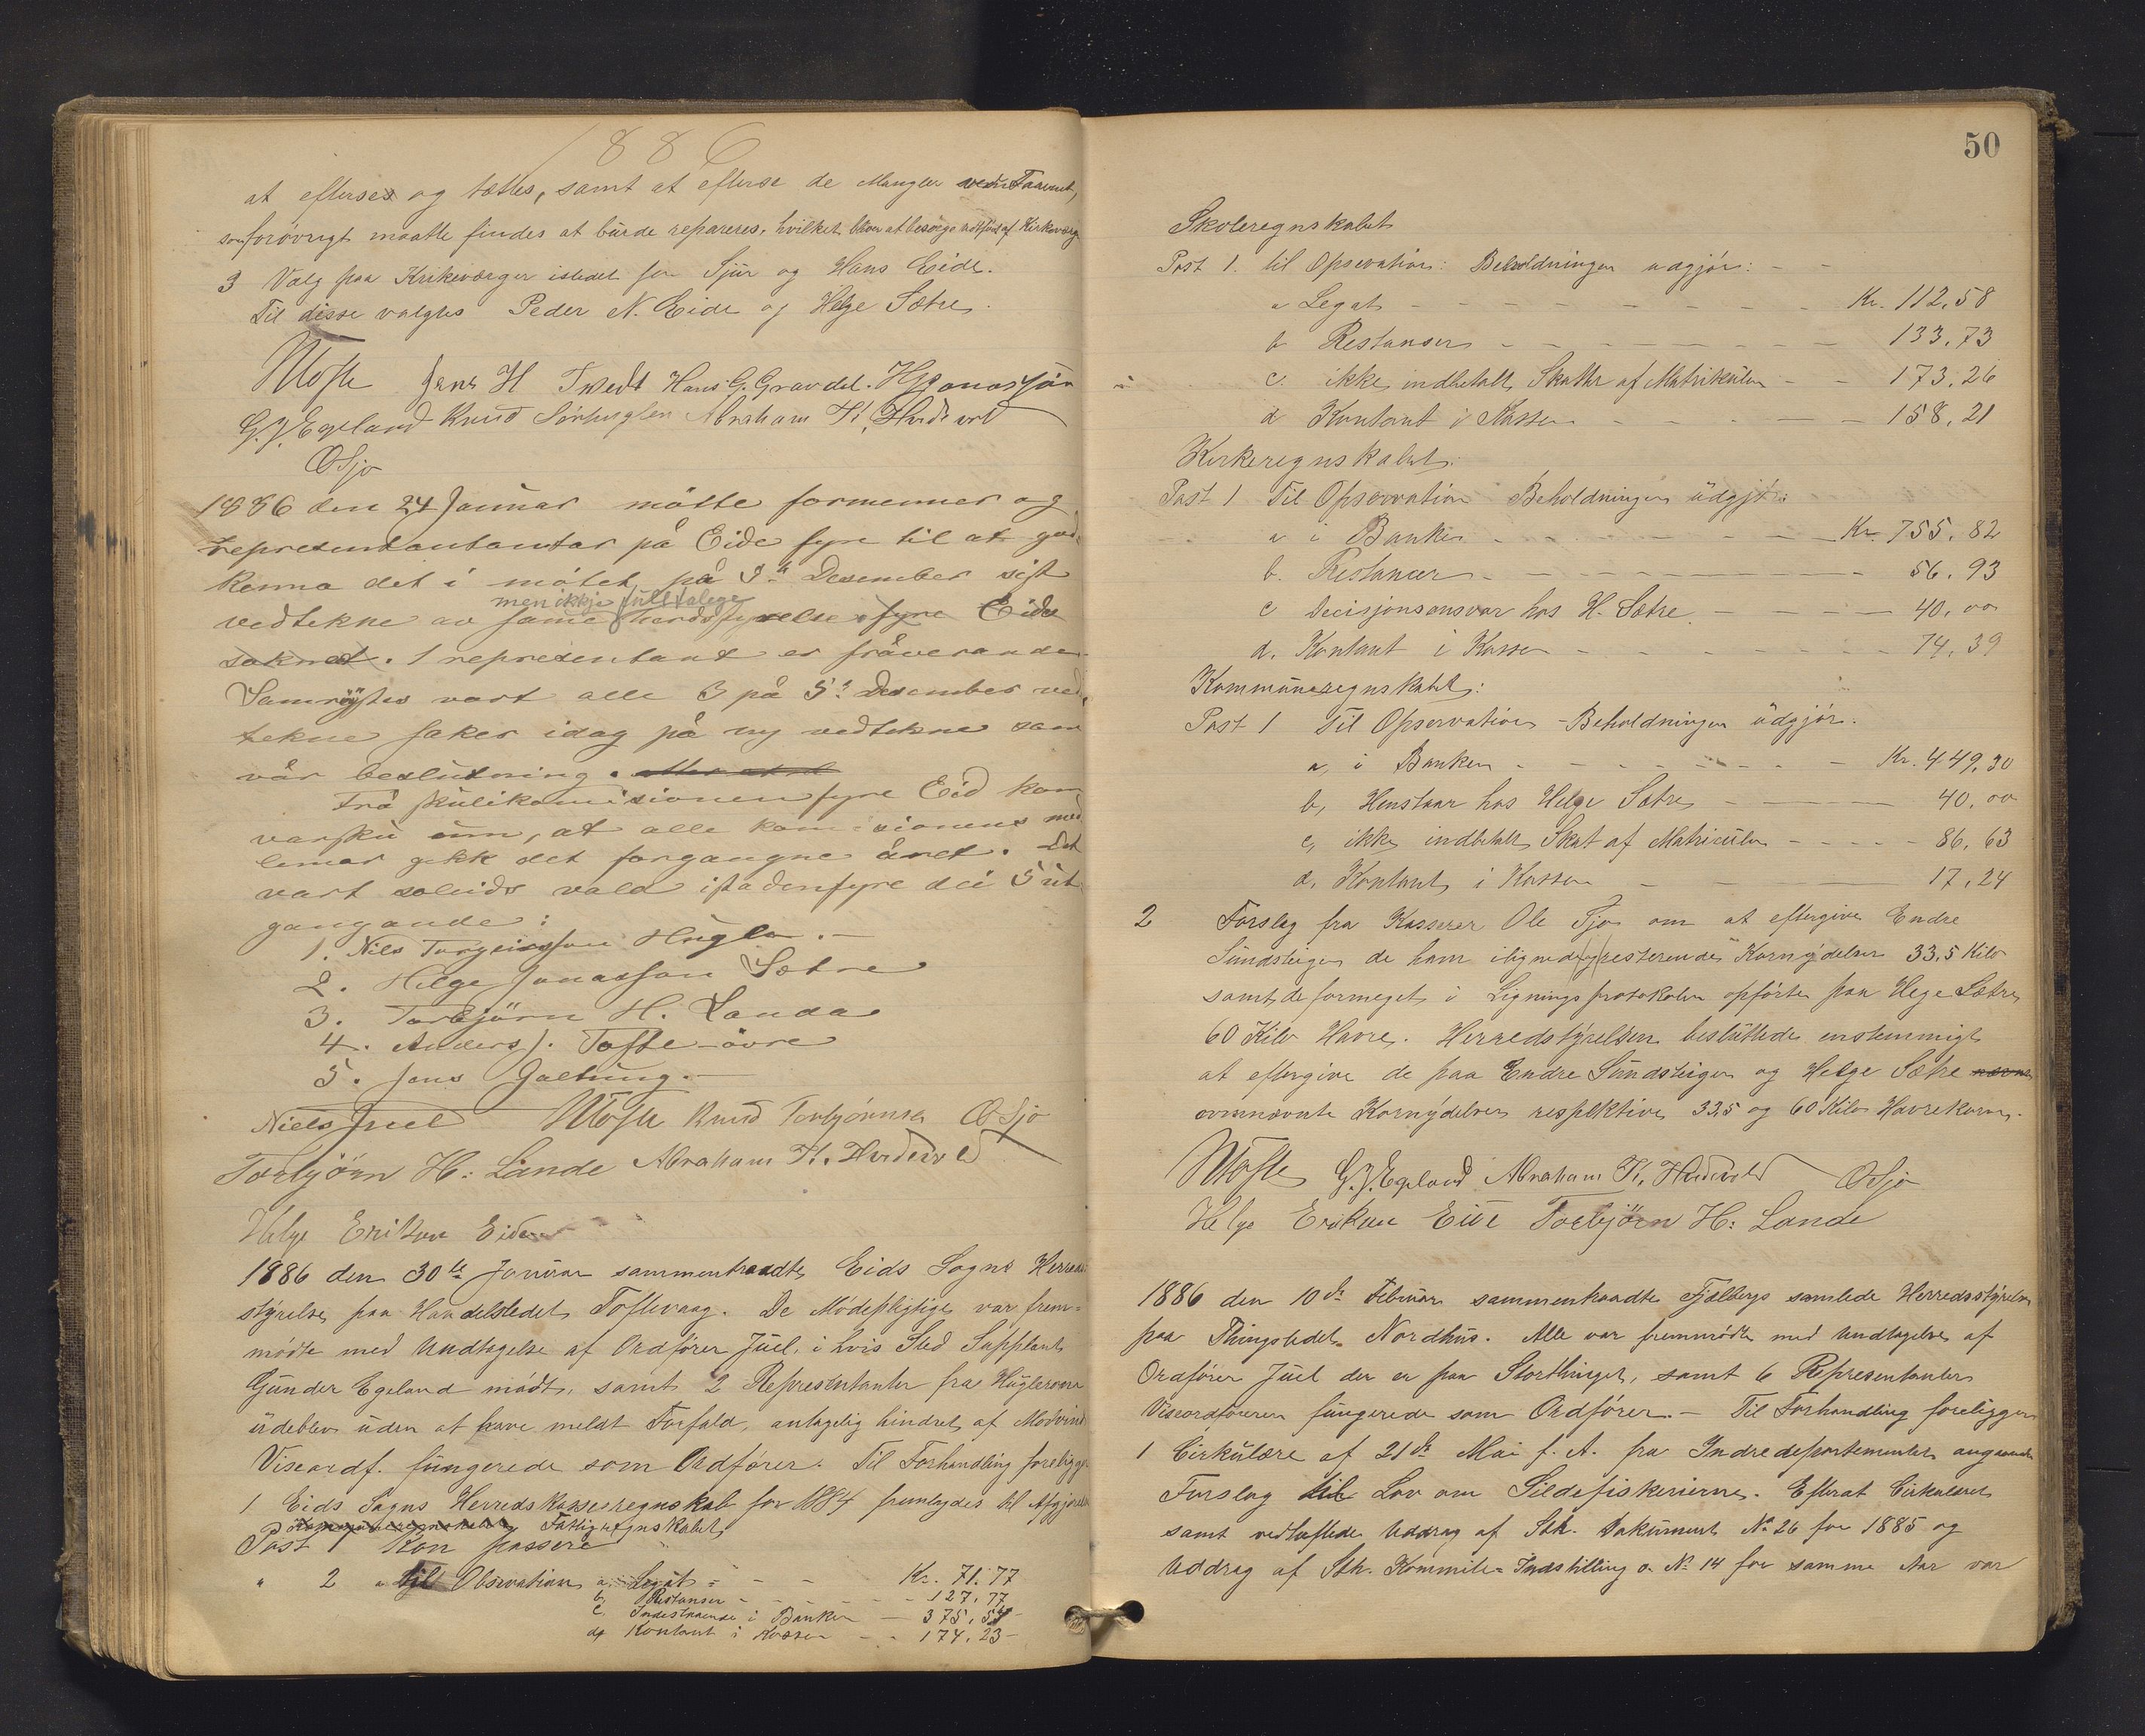 1886
at efterses og tættes, samt at efterse de Mangler ved Taarnet,
som forøvrigt maatte findes at burde repareres, hvilket blev at besørge udført af Kirkeværge
3 Valg paa Kirkeværger istedet for Sjur og Hans Eide.
Til disse valgtes Peder N. Eide og Helge Sætre.
Jens H Tvedt Hans G. Gravdal.
G. J. Egeland Knud Abraham K. Hvidevold
O Sjo
1886 den 24 Januar møtte formenner og
representantantar på Eide fyre til at god-
kenna det i møtet på 5te Desember sist
men ikkje fulltalege
vedtekne av same herdsstyrelse fyre Eide
soknet. 1 representant er fråverande
Samrøystes vart alle 3 på 5te Desember ved-
tekne saker idag på ny vedtekne som
vår beslutning.
Frå skulikomisionen fyre Eid kom
varsku um, at alle komisionens med-
lemar gekk det forgangne året. Det
vart soleids vald istadenfyre dei 5 ut-
gangande:
1. Nils Torgeirsson Hugla.
2. Helge Jonasson Sætre
3. Torbjörn H. Landa
4. Anders J. Tofte övre
5. Jens Galtung.
Niels Juel Knud Torbjørnsen O Sjo
Torbjörn H: Lande Abraham K. Hvidevold
Helge Erikson Eide
1886 den 30te Januar sammentraadte Eids Sogns Herreds-
styrelse paa Handelstedet Toftevaag. De Mødepligtige var frem-
mødte med Undtagelse af Ordfører Juel, i hvis Sted Supplant
Gunder Egeland mødte, samt 2 Representanter fra Huglerne
udeblev uden at have meldt Forfald, antagelig hindret af Modvind
Viseordf. fungerede som Ordfører. Til Forhandling foreligger
1 Eids Sogns Herredskasseregnskab for 1884 fremlagdes til Afgjørelse
Kommuneregnskabet Fattigregnskabet
Post 1 Kan passere
" 2 " til Observation a, Legat - - - Kr. 71.77
b, Restanser - - - - - 127,77
c. Indestaaende i Banken - 375,54
d, Kontant i Kassen - - 174,23 -
50
Skoleregnskabet
Post 1. til Opservation: Beholdningen udgjør: - -
a Legat - - - - - - - - Kr. 112,58
b Restanser - - - - - - - 133,73
c. ikke indbetalt Skatter af Matrikulen - - 173,26
d Kontant i Kassen - - - - - - 158,21
Kirkeregnskabet:
Post 1 Til Opservation Beholdningen udgjør:
a i Banken - - - - - - - Kr. 755,82
b. Restancer - - - - - - - 56,93
c Decisjonsansvar hos H. Sætre. - - - - 40,00
d. Kontant i Kassen - - - - - - - 74,39
Kommuneregnskabet:
Post 1 Til Opservation - Beholdningen udgjør.
a, i Banken - - - - - - - Kr. 449,30
b, Henstaar hos Helge Sætre - - - - 40,00
c, ikke indbetalt Skat af Matriculen - - - - - 86,63
d, Kontant i Kassen - - - - 17,24
2 Forslag fra Kasserer Ole Sjo om at eftergive Endre
Sundsteigen de ham ilignede resterende Kornydelser 33,5 Kilo
samt de formeget i Ligningsprotokolen opførte paa Hege Sætre
60 Kilo Havre. Herredstyrelsen besluttede enstemmigt
at eftergive de paa Endre Sundsteigen og Helge Sætre
ovennævnte Kornydelser respektive 33,5 og 60 Kilo Havrekorn.
G. J. Egeland Abraham K. Hvidevold O Sjo
Helge Erikson Eide Torbjörn H: Lande
1886 den 10de Februar sammentraadte Fjelbergs samlede Herredsstyrelse
paa Thingstedet Nordhus. Alle var fremmødte med Undtagelse af
Ordfører Juel der er paa Storthinget, samt 6 Representanter
Viseordføreren fungerede som Ordfører. - Til Forhandling foreligger
1 Cirkulære af 21de Mai f. A. fra Indredepartementet angaaende
Forslag til Lov om Sildefiskerierne. Efterat Cirkulæret
samt vedheftede Uddrag af Sth. Dokument No 26 for 1885 og
Uddrag af Sth. Kommite-Indstilling o. No 14 for samme Aar var